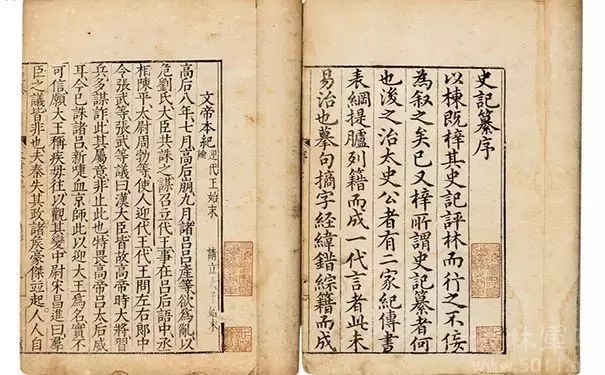 史記纂序
以棟既梓其史記評林而行之不佞
為叙之矣已又梓所謂史記纂者何
也浚之治太史公者有二家紀傳書
表綱提臚列籍而成一代言者此未
易治也摹句摘字經緯錯綜籍而成
文帝本紀
迎代王始末
高后八年七月高后崩九月諸呂呂產等欲為亂以
危劉氏大臣共誅之謀召立代王事在呂后語中丞
相陳平太尉周勃等使人迎代王代王問左右郎中
令張武等張武等議曰漢大臣皆故高帝時大將習
兵多謀詐此其屬意非止此也特畏高帝呂太后威
耳今已誅諸呂新喋血京師此以迎大王為名實不
可信願大王稱疾毋往以觀其變中尉宋昌進曰羣
臣之議皆非也夫秦失其政諸侯豪傑並起人人自